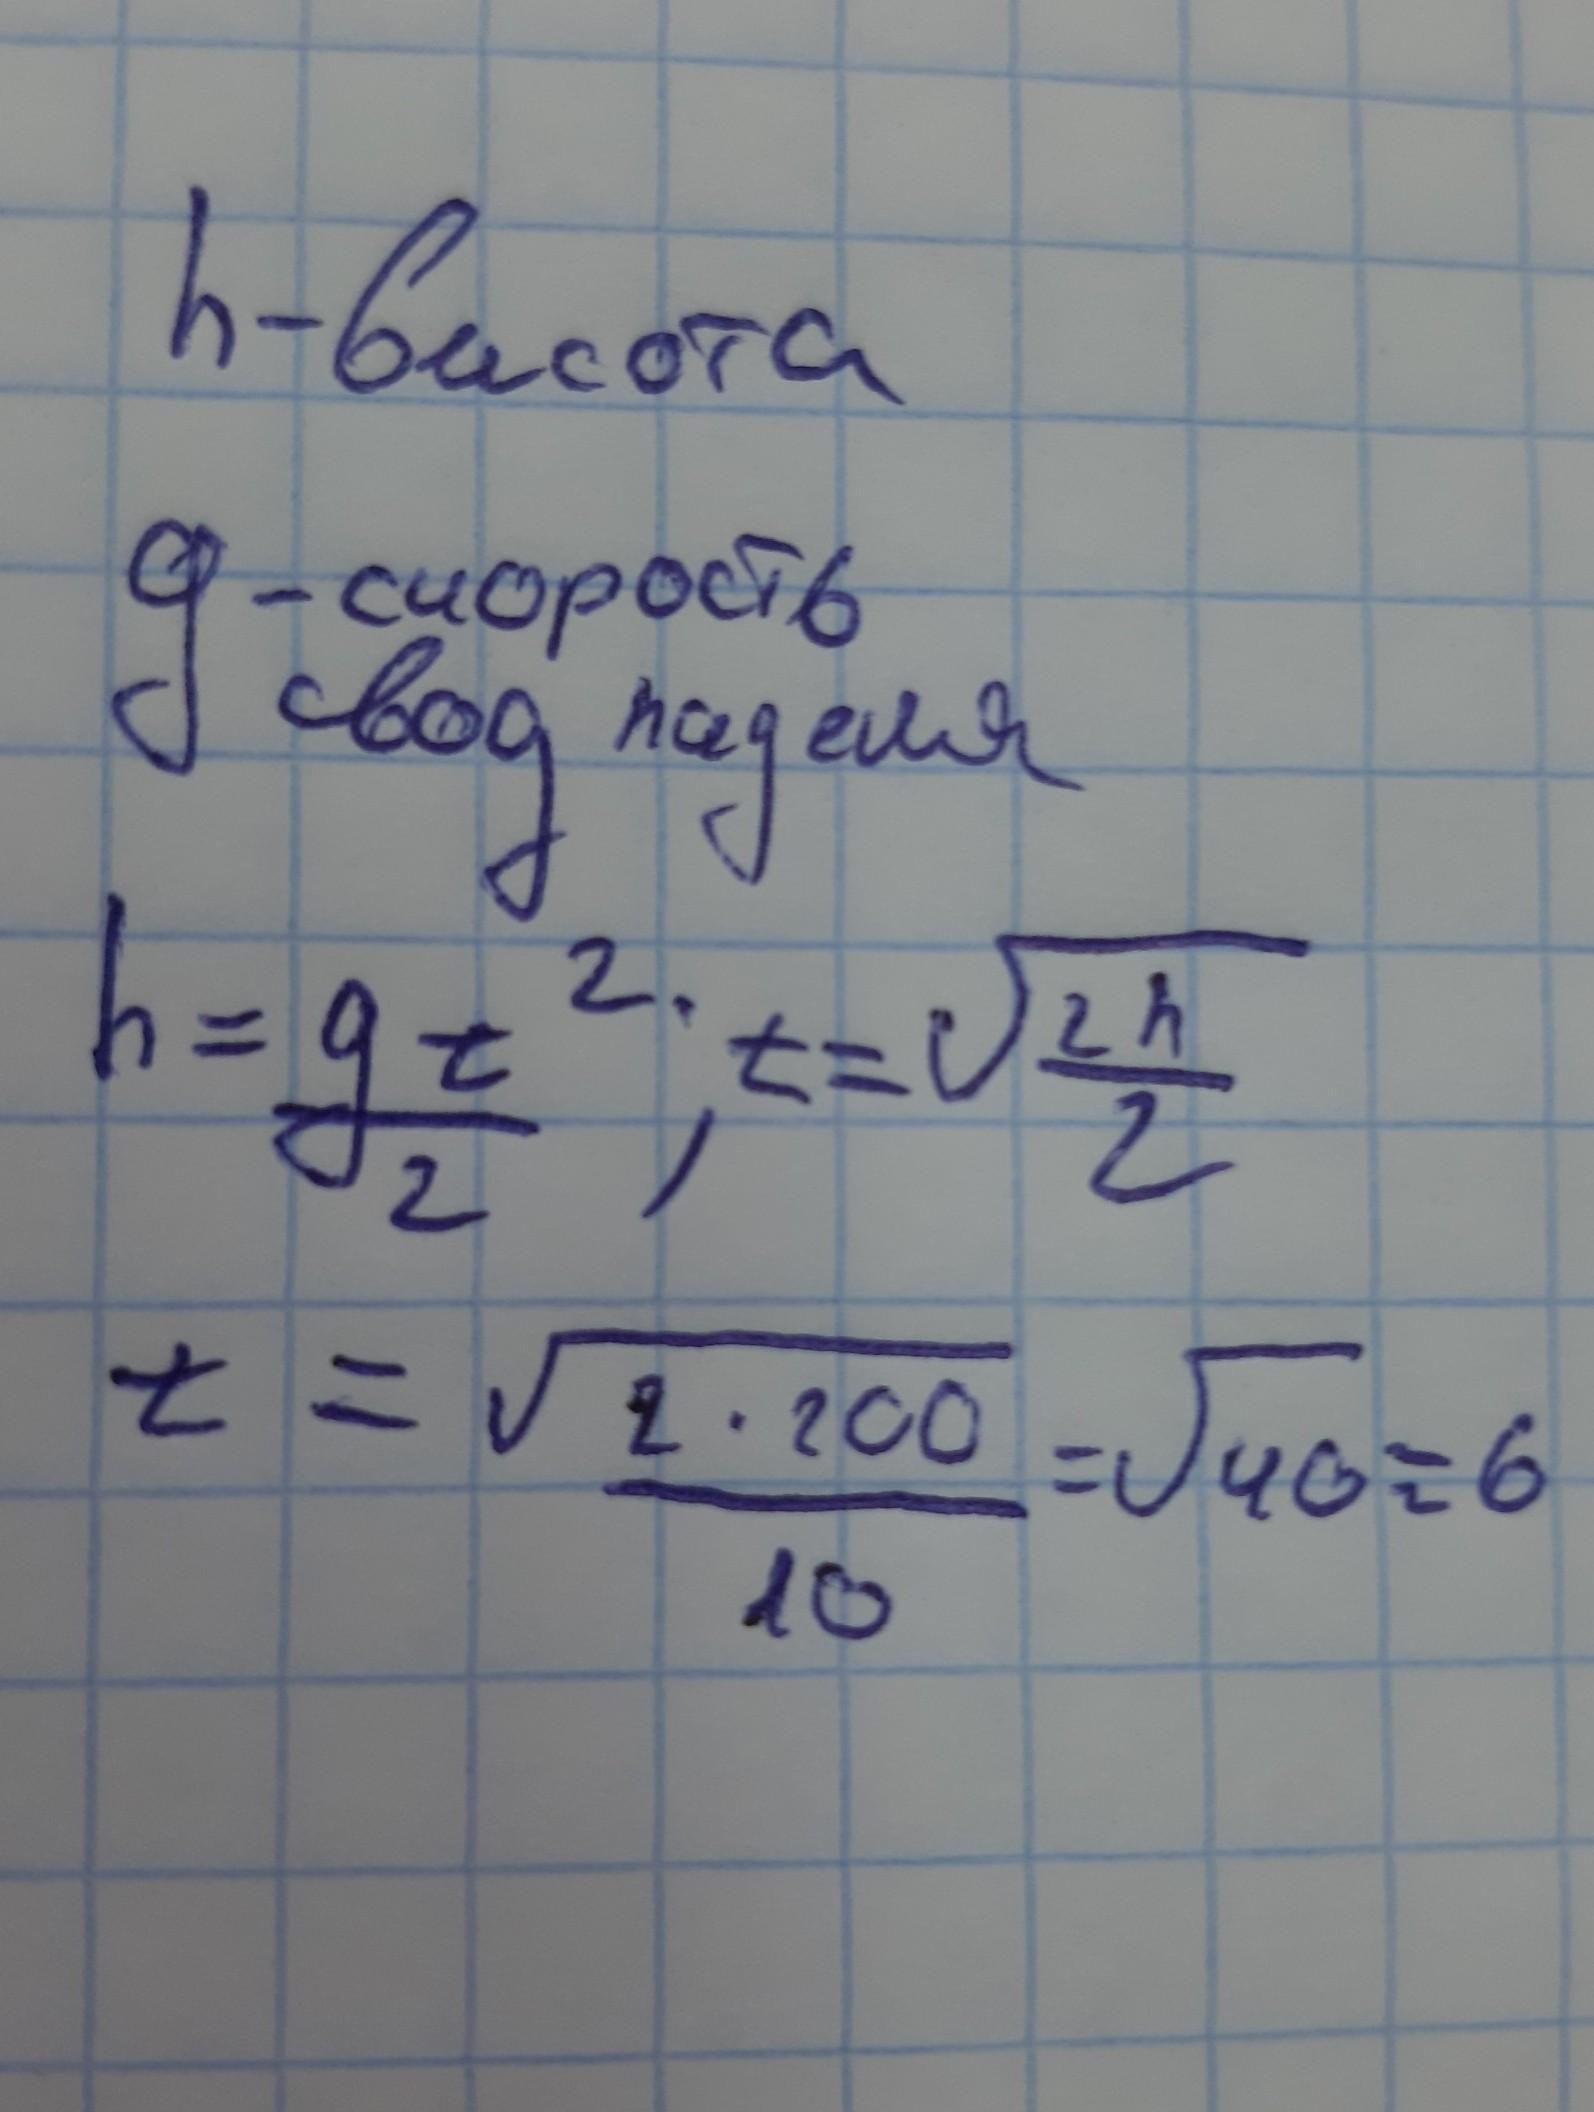 h - висота
g - скорость
свод падения
h = gt²/2 ; t = √(2h/2)
t = √(2·200/10) = √40 = 6